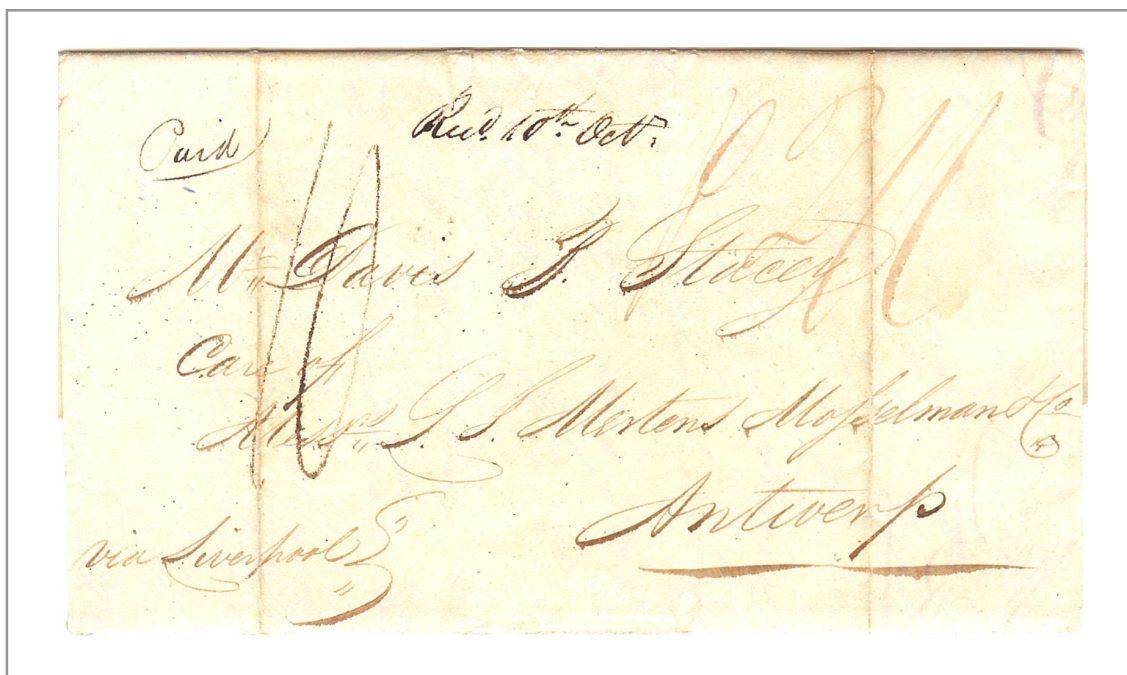 Paid
Recd. 10th Octr.
Mr. Davis B. Stacey
Care of
Messrs. L. S. Mertens Mosselman & Co
Antwerp
via Liverpool